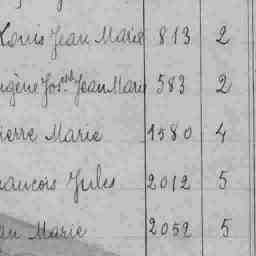 Louis Jean Marie 813 2
ugène Jos.ph Jean Marie 583 2
ierre Marie 1580 4
rancois Jules 2012 5
an Marie 2052 5